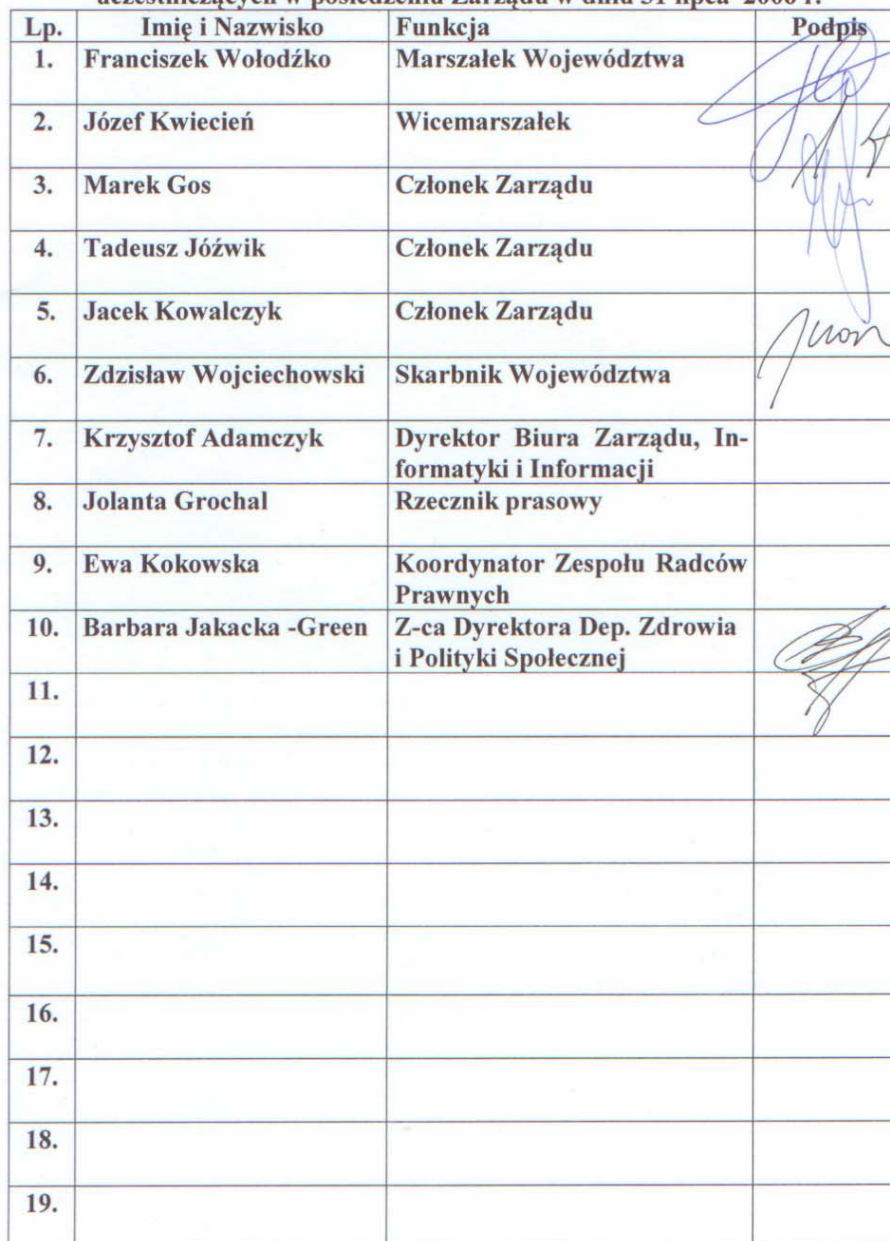 uczestniczących w posiedzeniu Zarządu w dniu 31 lipca 2006 r.
Lp. Imię i Nazwisko Funkcja Podpis
1. Franciszek Wołodźko Marszałek Województwa
2. Józef Kwiecień Wicemarszałek
3. Marek Gos Członek Zarządu
4. Tadeusz Jóźwik Członek Zarządu
5. Jacek Kowalczyk Członek Zarządu
6. Zdzisław Wojciechowski Skarbnik Województwa
7. Krzysztof Adamczyk Dyrektor Biura Zarządu, In-
formatyki i Informacji
8. Jolanta Grochal Rzecznik prasowy
9. Ewa Kokowska Koordynator Zespołu Radców
Prawnych
10. Barbara Jakacka -Green Z-ca Dyrektora Dep. Zdrowia
i Polityki Społecznej
11.
12.
13.
14.
15.
16.
17.
18.
19.